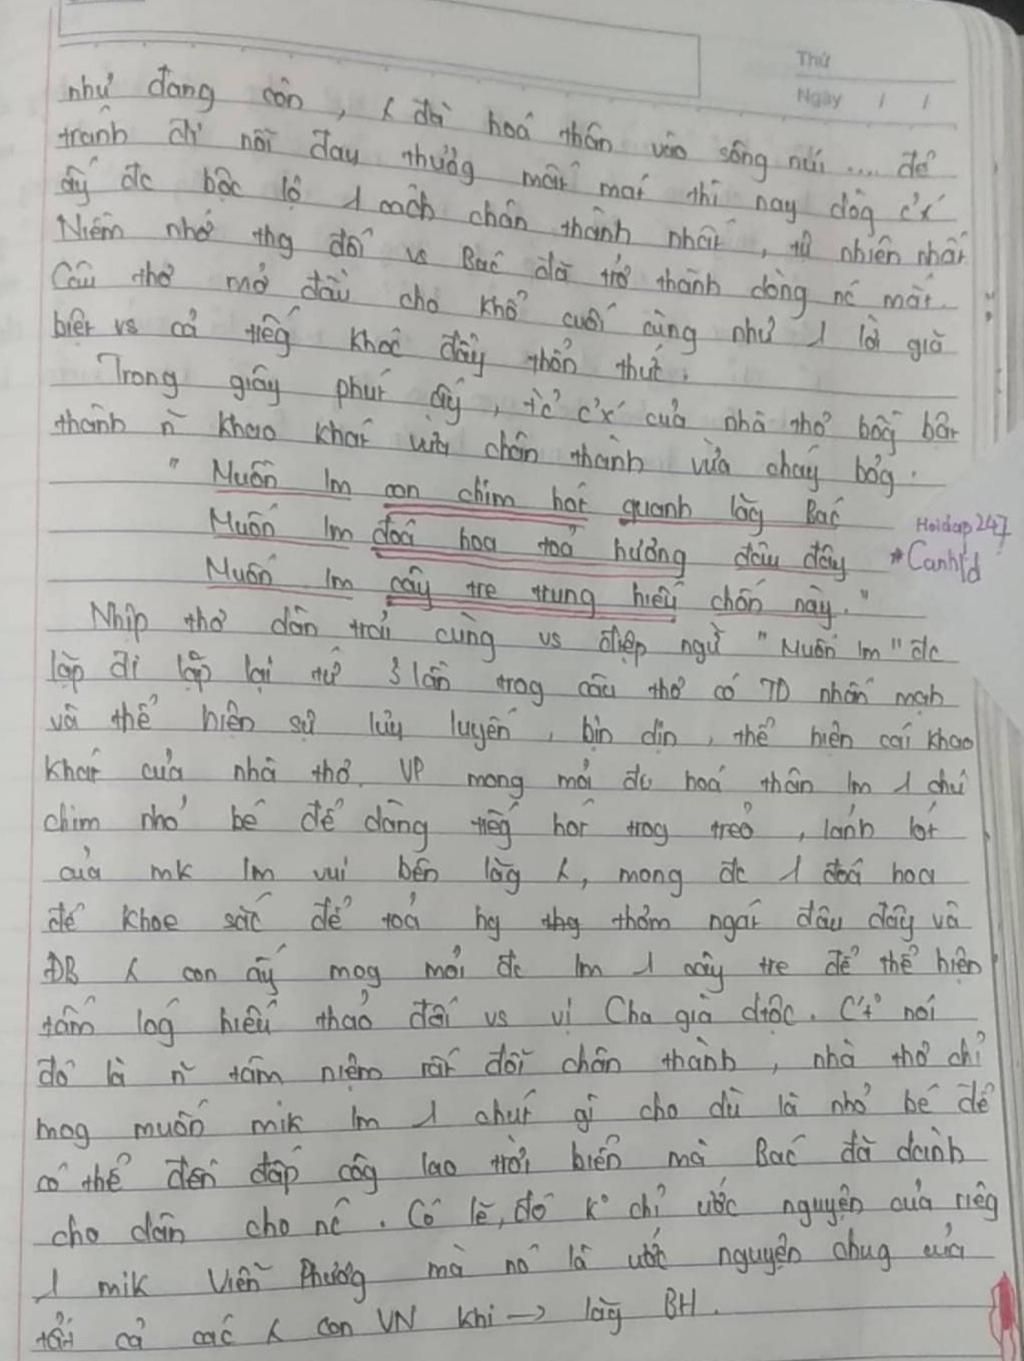 Thứ
Ngày / /
như đang còn, ʎ đã hoá thân vào sông núi .... để
tránh đi nỗi đau thươg mất mát thì nay dòg c'x'
ấy đc bộc lộ 1 cách chân thành nhất, tự nhiên nhất
Niềm nhớ thg đối vs Bác đã trở thành dòng nc mắt.
Câu thơ mở đầu cho khổ cuối cùng như 1 lời giã
biệt vs cả tiếg khóc đầy thổn thức.
Trong giây phút ấy, tc' c'x' của nhà thơ bỗg bật
thành ~n khao khát vừa chân thành vừa cháy bỏg.
"Muốn lm con chim hót quanh lăg Bác
Muốn lm đoá hoa toả hương đâu đây
Muốn lm cây tre trung hiếu chốn này."
Hoidap247
*Canhtd
Nhịp thơ dàn trải cùng vs điệp ngữ "Muốn lm" đc
lặp đi lặp lại từ 3 lần trog câu thơ có TD nhấn mạh
và thể hiện sự lưu luyến, bịn dịn, thể hiện cái khao
khát của nhà thơ. VP mong mỏi đc hoá thân lm 1 chú
chim nhỏ bé để dâng tiếg hót trog trẻo, lảnh lót
của mk lm vui bên lăg ʎ, mong đc 1 đoá hoa
để khoe sắc để toả hg thg thơm ngát đâu đây và
ĐB ʎ con ấy mog mỏi đc lm 1 cây tre để thể hiện
tấm lòg hiếu thảo đối vs vị Cha già dtộc. C't' nói
đó là ~n tâm niệm rất đỗi chân thành, nhà thơ chỉ
mog muốn mik lm 1 chút gì cho dù là nhỏ bé để
có thể đền đáp côg lao trời biển mà Bác đã dành
cho dân cho nc. Có lẽ, đó k° chỉ ước nguyện của riêg
1 mik Viễn Phương mà nó là ước nguyện chug của
tất cả các ʎ con VN khi → lăg BH.